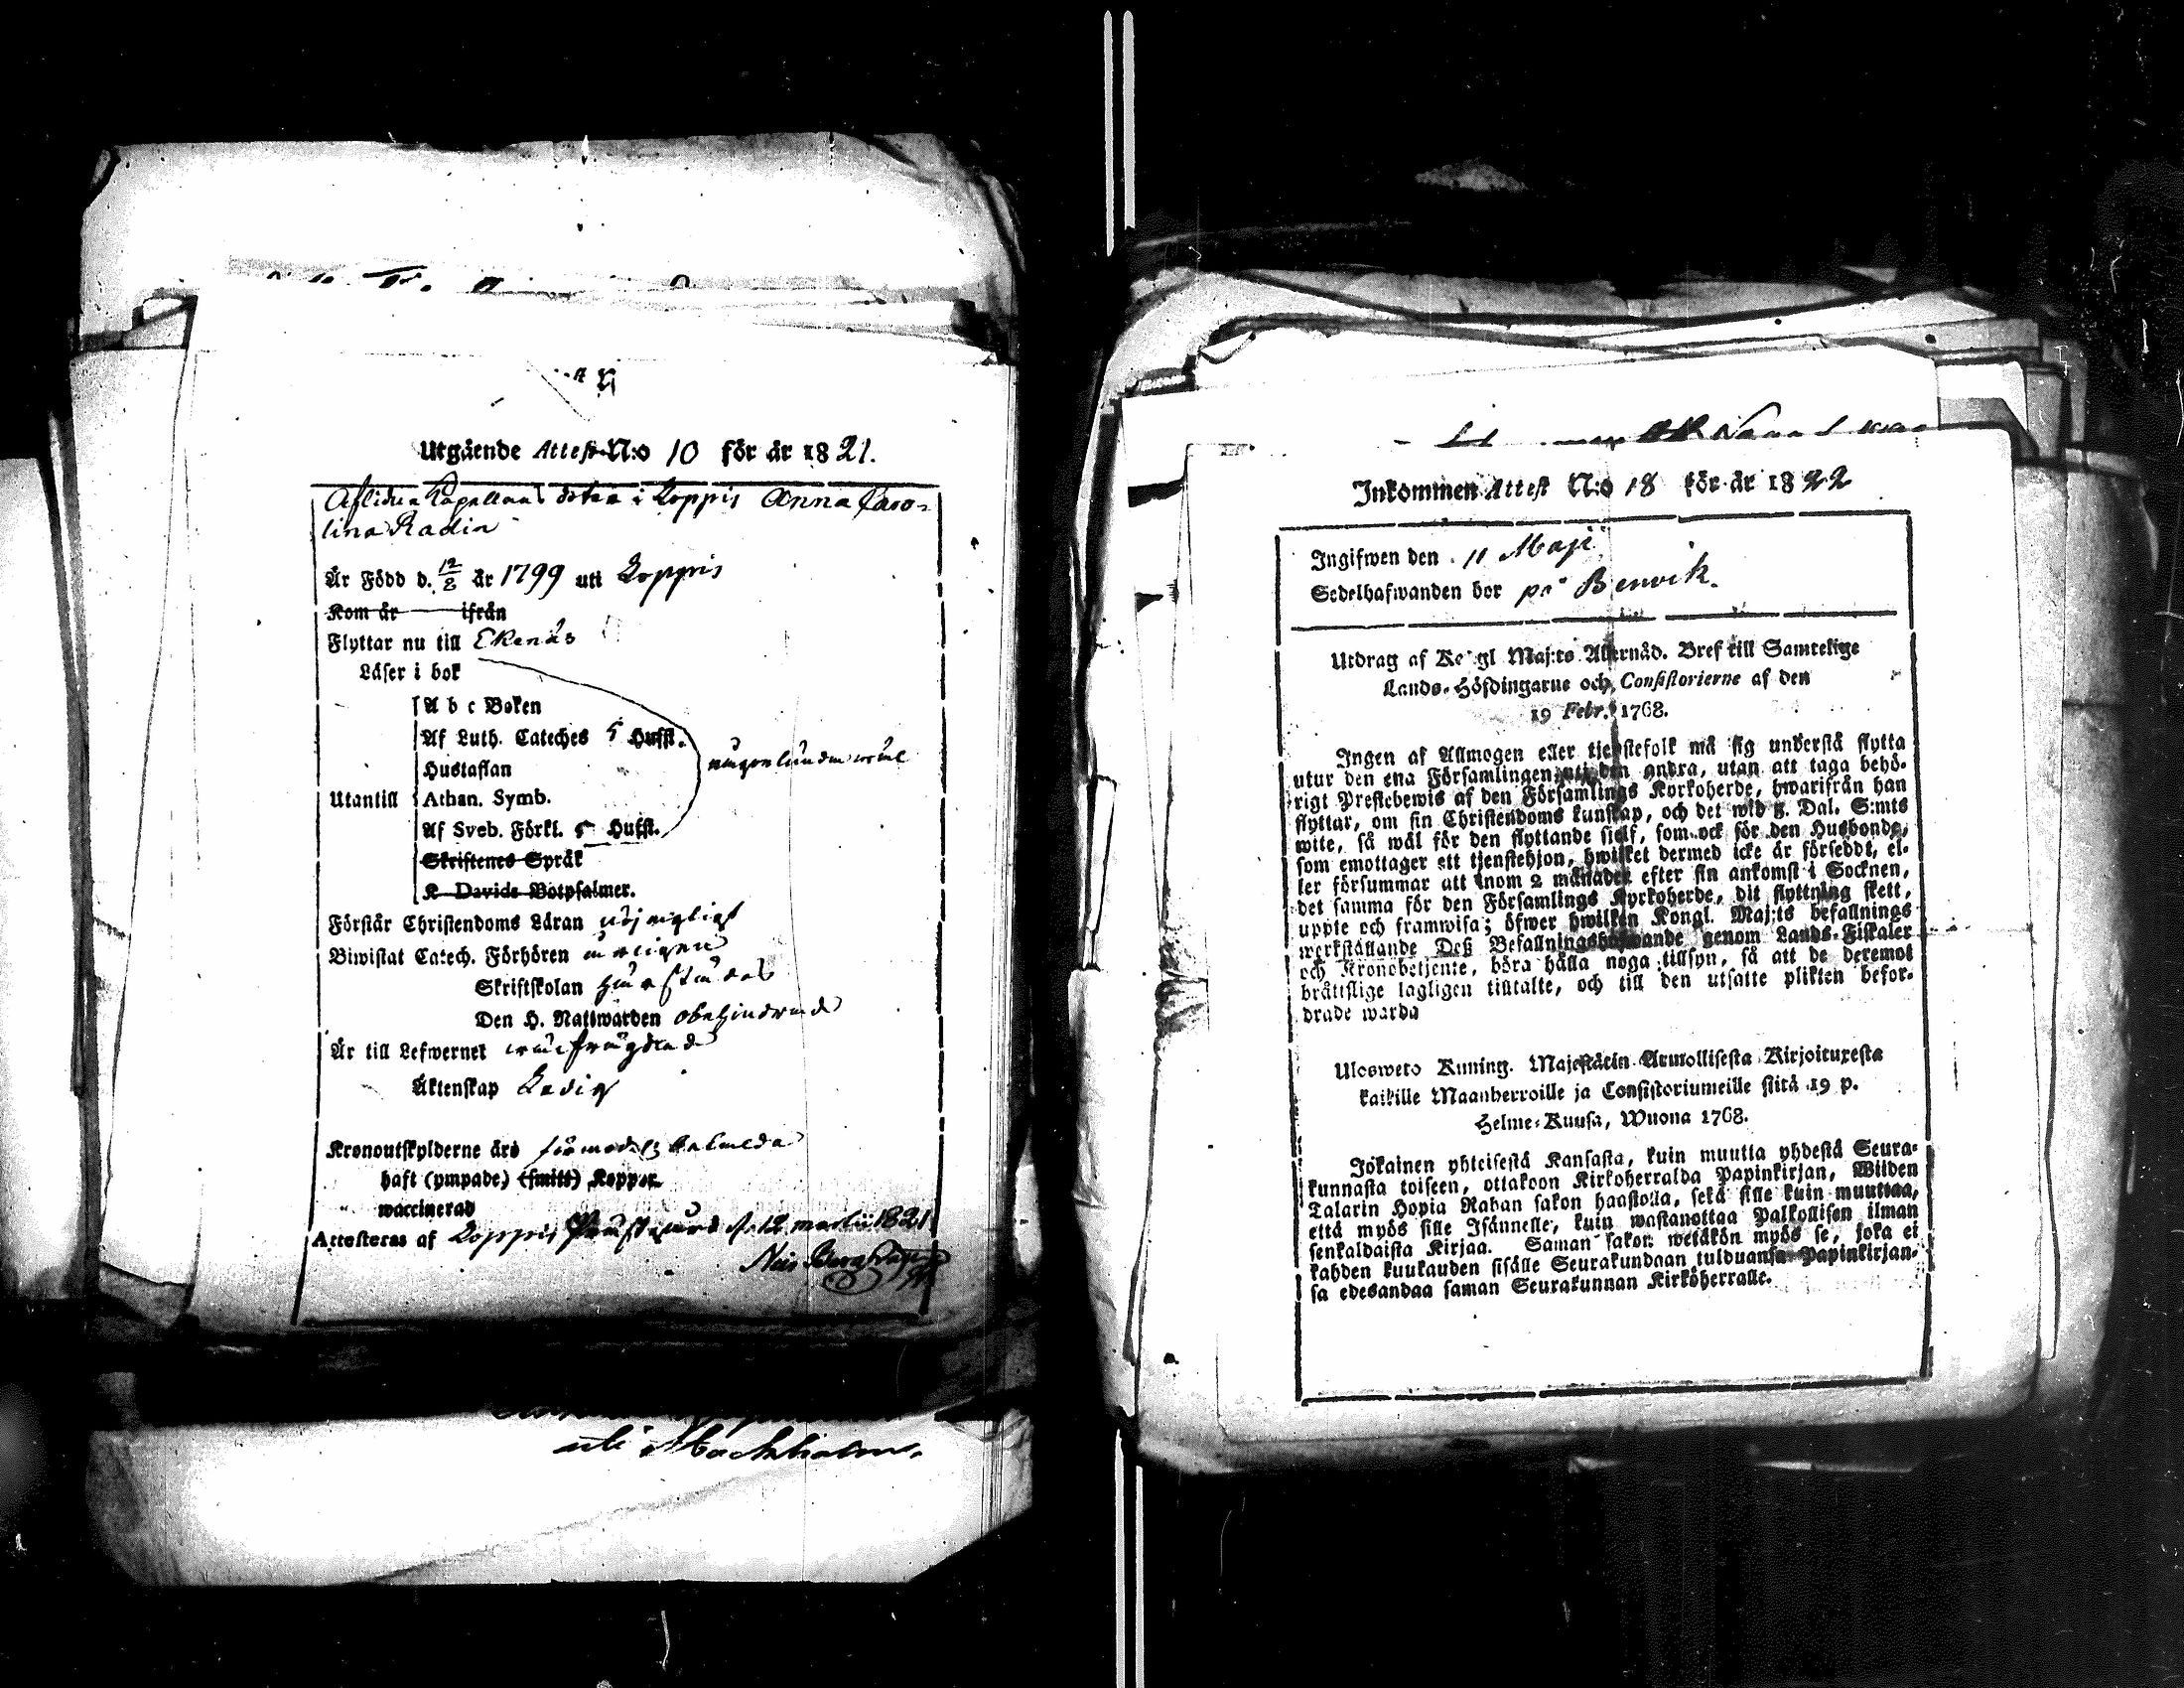 Utgående Attest N:o 10 för år 1821.
Aflidna Capellans dotter i Koppis Anna Caro=
lina Radin
Är Född d. 12/8 år 1799 uti Koppis
Kom år ifrån
Flyttar nu till Ekenäs
Läser i bok
A b c Boken
Af Luth. Cateches 5 Hufst.
Hustaflan
Utantill Athan. Symb.
Af Sveb. Förkl. 5 Hufst.
Skriftenes Språk
K Davids Botpsalmer.
någorlunda wäl
Förstår Christendoms Läran nöjagtigt
Biwistat Catech. Förhören
Skriftskolan
Den H. Nattwarden obehindrad
Är till Lefwernet wälfrägdad
Äktenskap Ledig
Kronoutskylderne äro betalda
haft (ympade) (smitt) Koppor
waccinerad
Attesteras af Koppis d. 12 martii 1821
uti
Inkommen Attest N:o 18 för år 1822
Ingifwen den 11 Maji
Sedelhafwanden bor på Benvik.
Utdrag af Kongl Maj:ts Allernåd. Bref till Samtelige
Lands-Höfdingarne och Consistorierne af den
19 Febr. 1768.
Ingen af Allmogen eller tjenstefolk må sig understå flytta
utur den ena Församlingen uti den andra, utan att taga behö-
rigt Prestebewis af den Församlings Kyrkoherde, hwarifrån han
flyttar, om sin Christendoms kunskap, och det wid 5. Dal. S:mts
wite, så wäl för den flyttande sjelf, som ock för den Husbonde,
som emottager ett tjenstehjon, hwilket dermed icke är försedt, el-
ler försummar att inom 2 månader efter sin ankomst i Socknen,
det samma för den Församlings Kyrkoherde, dit flyttning skett,
uppte och framwisa; öfwer hwilken Kongl. Maj:ts befallnings
werkställande Deß Befallningshafwande genom Lands-Fiskaler
och Kronobetjente, böra hålla noga tillsyn, så att de deremot
bråttslige lagligen tilltalte, och till den utsatte plikten befor-
drade warda
Ulosweto Kuning. Majestätin Armollisesta Kirjoituxesta
kaikille Maanherroille ja Consistoriumeille siitä 19 p.
Helme-Kuusa, Wuona 1768.
Jokainen yhteisestä Kansasta, kuin muutta yhdestä Seura-
kunnasta toiseen, ottakoon Kirkoherralda Papinkirjan, Wiiden
Talarin Hopia Rahan sakon haastolla, sekä sille kuin muuttaa,
että myös sille Isännelle, kuin wastanottaa Palkollisen ilman
senkaldaista Kirjaa. Saman sakon wetäkön myös se, joka ei
kahden kuukauden sisälle Seurakundaan tulduansa Papinkirjan-
sa edesandaa saman Seurakunnan Kirköherralle.